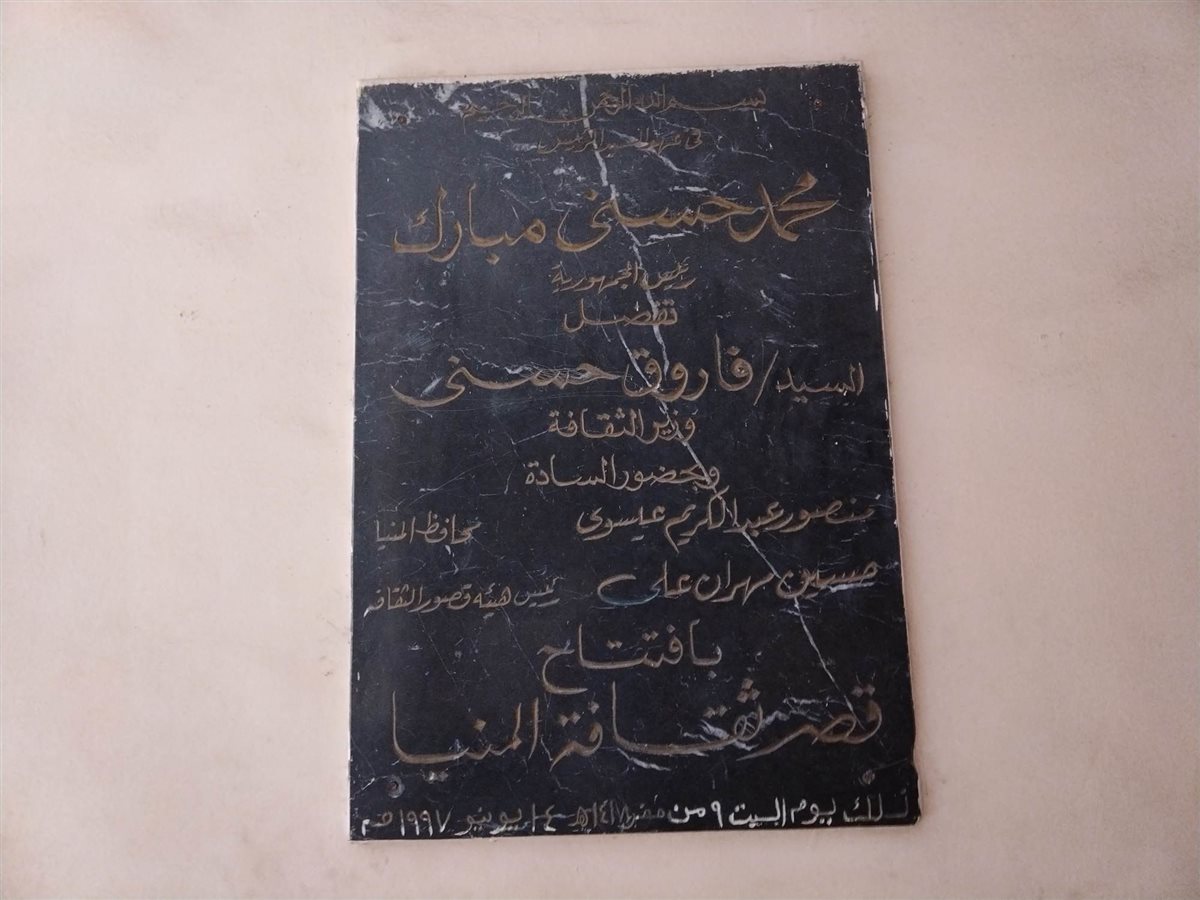 بسم الله الرحمن الرحيم
فى عهد السيد الرئيس
محمد حسنى مبارك
رئيس الجمهورية
تفضل
السيد/ فاروق حسنى
وزير الثقافة
وبحضور السادة
منصور عبد الكريم عيسوى محافظ المنيا
حسين مهران على رئيس هيئة قصور الثقافة
بافتتاح
قصر ثقافة المنيا
ذلك يوم السبت ٩ من صفر ١٤١٨هـ ١٤ يونيو ١٩٩٧م